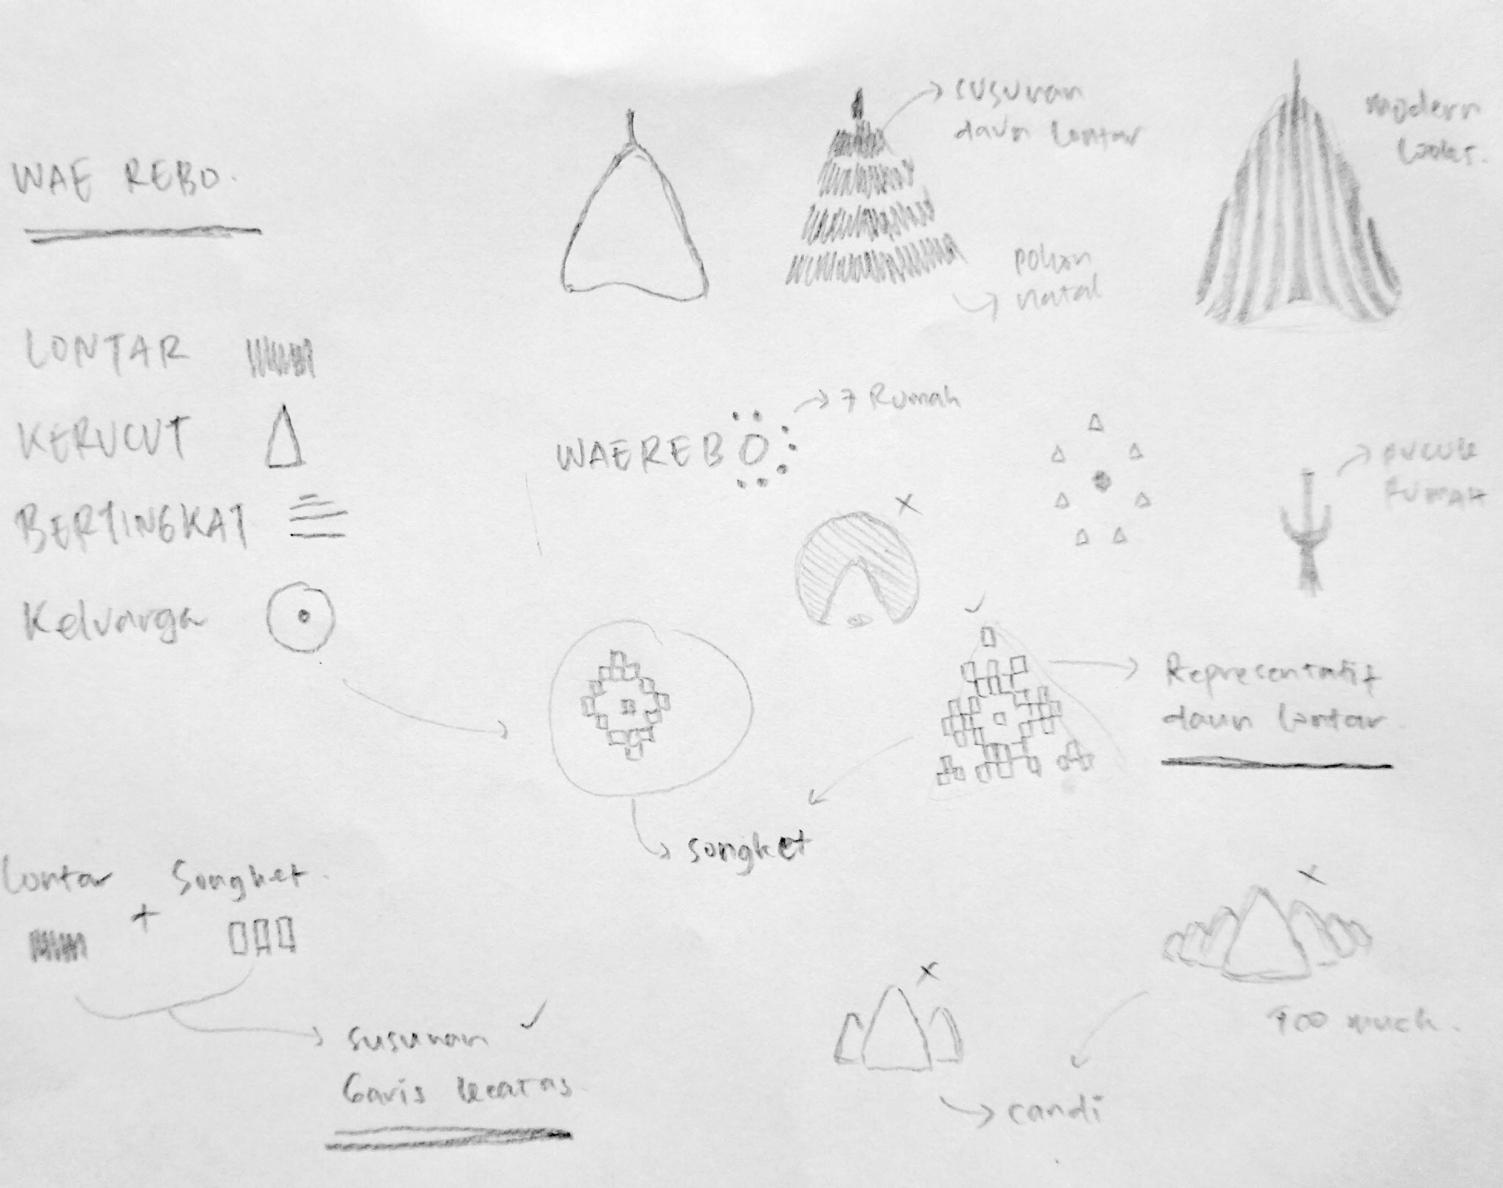 WAE REBO.
susunan
daun lontar
modern
looks.
pohon
natal
LONTAR
KERUCUT
BERTINGKAT
Keluarga
7 Rumah
WAEREBO
pucuk
RUMAH
Representatif
daun lontar.
songket
Lontar + Songket.
susunan
Garis keatas.
Too much.
candi